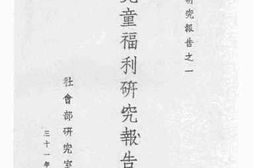 研究報告之一
兒童福利研究報告
社會部研究室
三十一